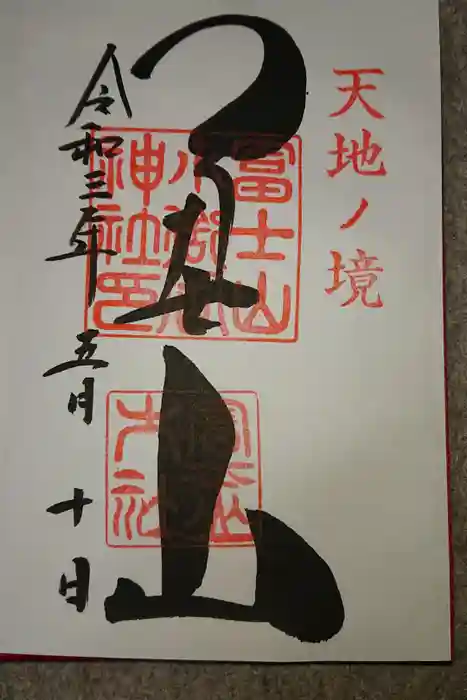 天地ノ境
冨士山
冨士山
小御嶽
神社印
令和三年五月十日